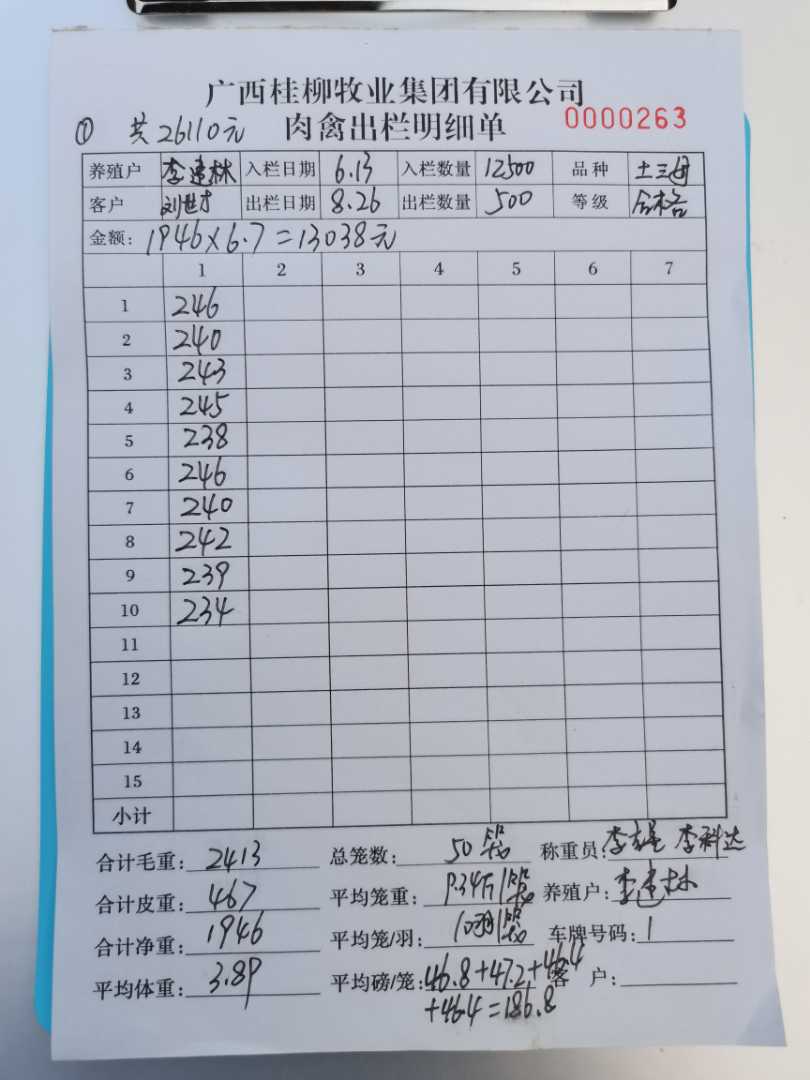 广西桂柳牧业集团有限公司
① 共26110元 肉禽出栏明细单 0000263
养殖户 李建林 入栏日期 6.13 入栏数量 12500 品种 土三母
客户 刘世才 出栏日期 8.26 出栏数量 500 等级 合格
金额: 1946×6.7=13038元
1 2 3 4 5 6 7
1 246
2 240
3 243
4 245
5 238
6 246
7 240
8 242
9 239
10 234
11
12
13
14
15
小计
合计毛重: 2413 总笼数: 50笼 称重员: 李 李科达
合计皮重: 467 平均笼重: 9.34斤/笼 养殖户: 李建林
合计净重: 1946 平均笼/羽: 10羽/笼 车牌号码: 1
平均体重: 3.89 平均磅/笼: 46.8+47.2+46.4 客户:
+46.4=186.8